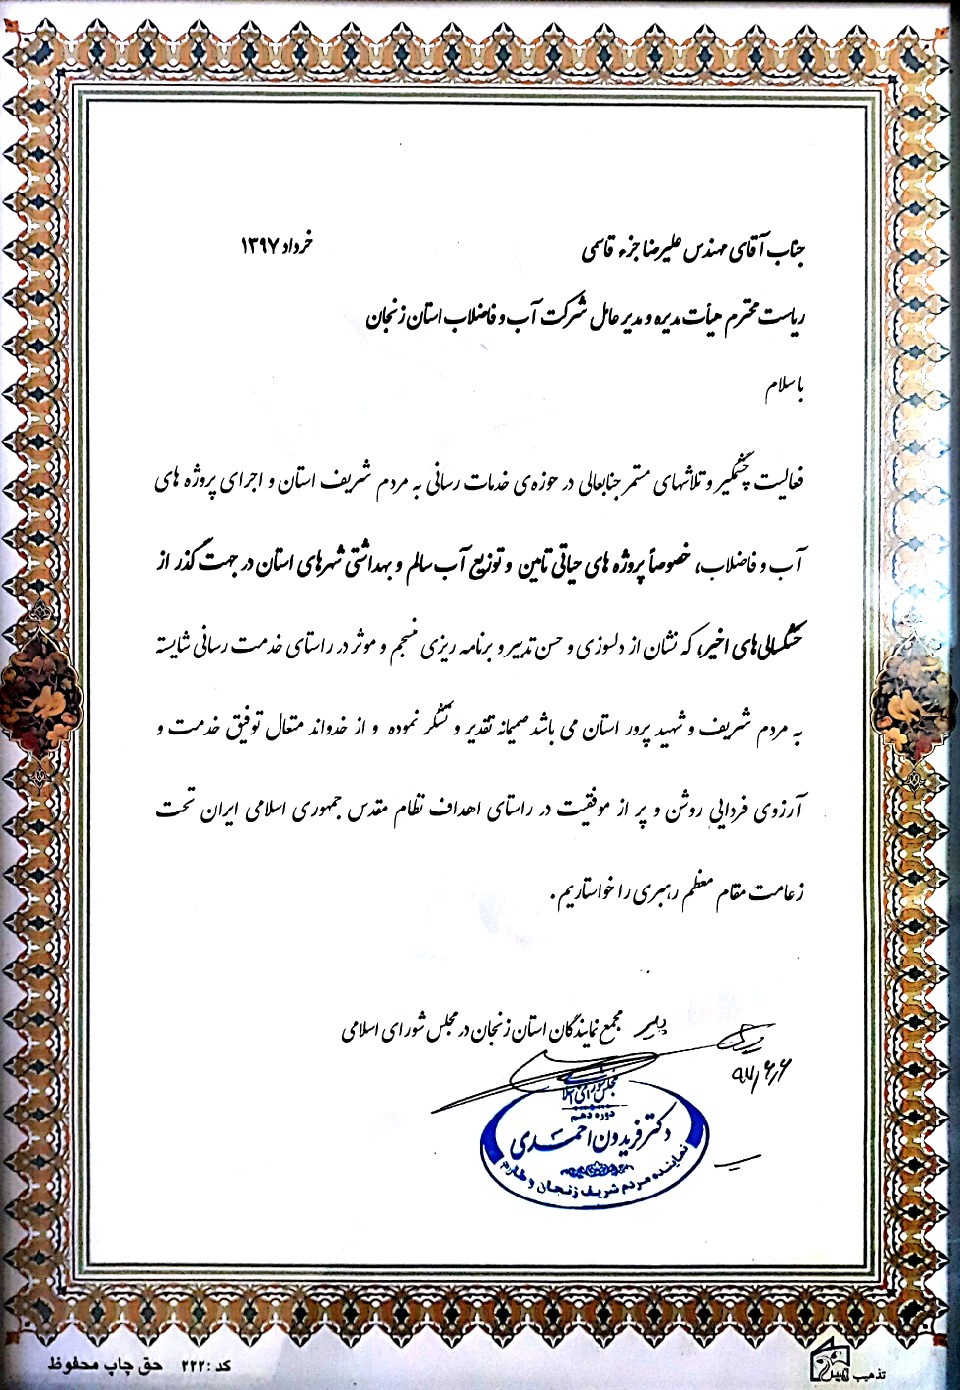 جناب آقای مهندس علیرضا جزء قاسمی
خرداد ۱۳۹۷
ریاست محترم هیأت مدیره و مدیر عامل شرکت آب و فاضلاب استان زنجان
با سلام
فعالیت چشمگیر و تلاشهای مستمر جنابعالی در حوزه‌ی خدمات رسانی به مردم شریف استان و اجرای پروژه های
آب و فاضلاب، خصوصاً پروژه های حیاتی تامین و توزیع آب سالم و بهداشتی شهرهای استان در جهت گذر از
خشکسالی‌های اخیر، که نشان از دلسوزی و حسن تدبیر و برنامه ریزی منسجم و موثر در راستای خدمت رسانی شایسته
به مردم شریف و شهید پرور استان می باشد صمیمانه تقدیر و تشکر نموده و از خداوند متعال توفیق خدمت و
آرزوی فردایی روشن و پر از موفقیت در راستای اهداف نظام مقدس جمهوری اسلامی ایران تحت
زعامت مقام معظم رهبری را خواستاریم.
مجمع نمایندگان استان زنجان در مجلس شورای اسلامی
مجلس شورای اسلامی
دوره دهم
دکتر فریدون احمدی
نماینده مردم شریف زنجان و طارم
کد :۲۲۲ حق چاپ محفوظ
تذهیب